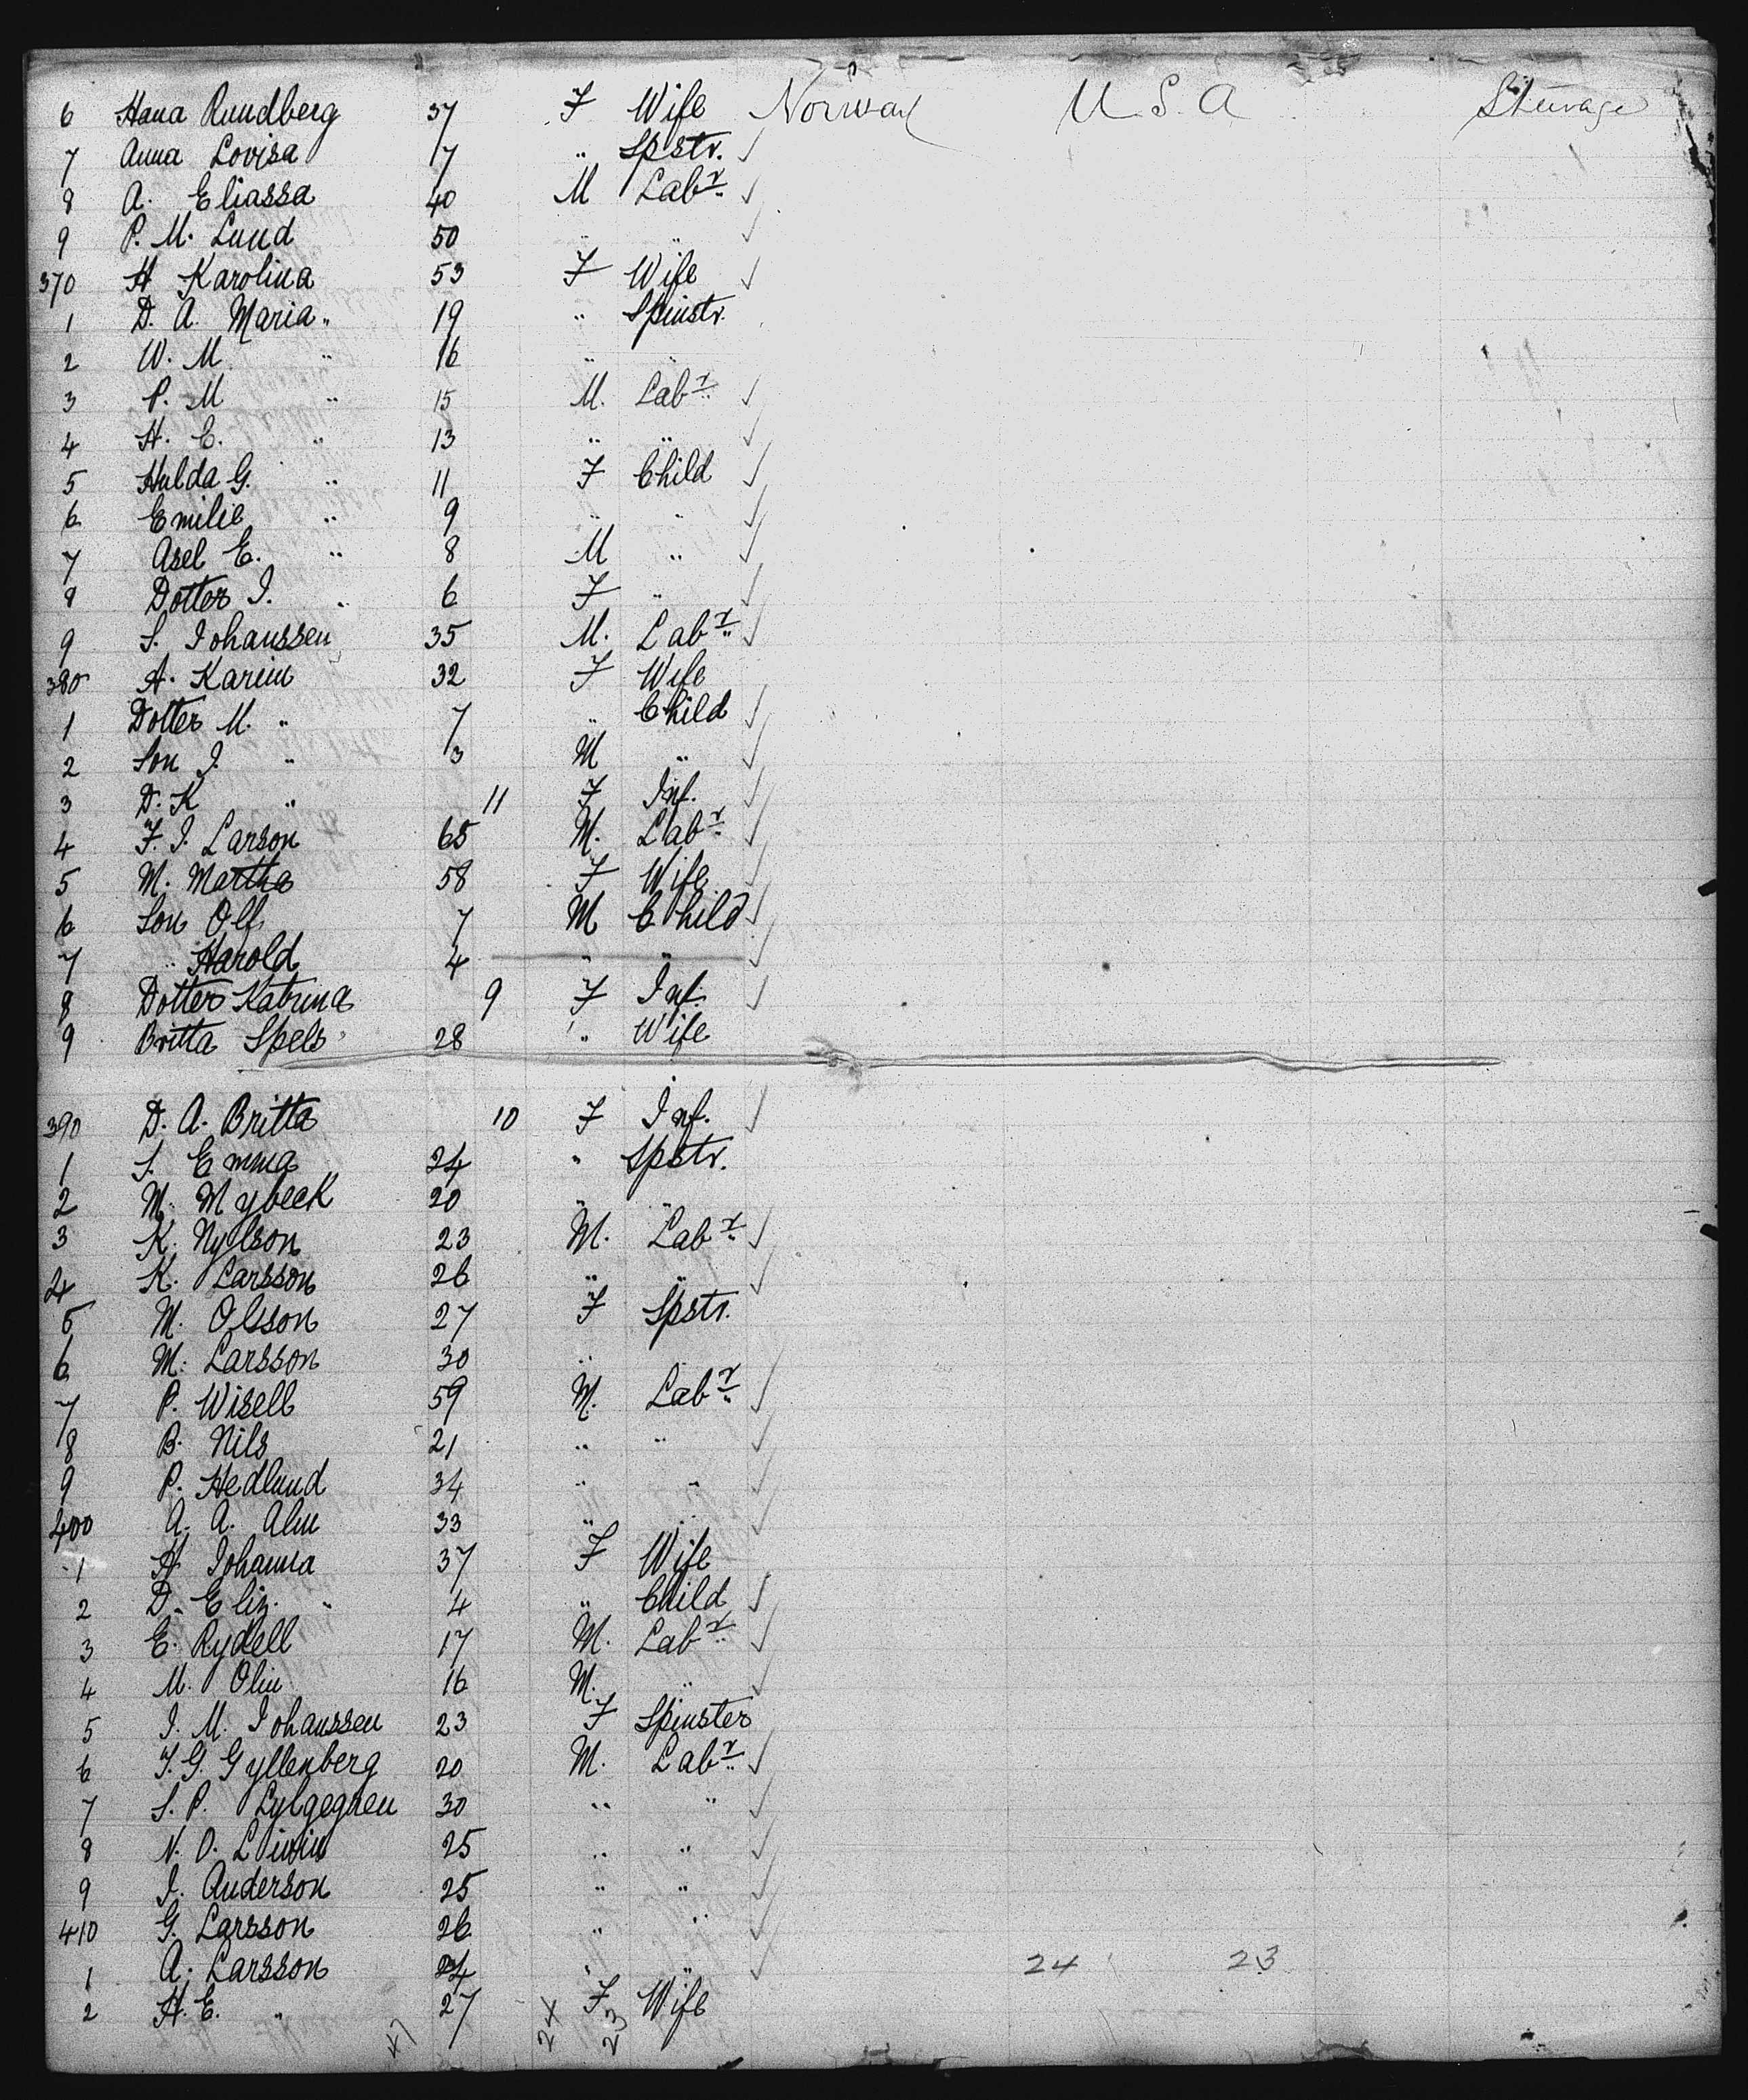 6 Hana Rundberg 37 F Wife Norway U.S.A Steerage
7 Anna Lovisa 17 " Spstr.
8 A. Eliassa 40 M Labr
9 P. M. Lund 50 " "
370 H Karolina 53 F Wife
1 D. A. Maria " 19 " Spinstr.
2 W. M. " 16 " "
3 P. M " 15 M. Labr
4 H. E. " 13 " "
5 Hulda G. " 11 F Child
6 Emilie " 9 " "
7 Axel E. " 8 M "
8 Dotter I. " 6 F "
9 S. Johanssen 35 M. Labr
380 A. Karin 32 F Wife
1 Dotter M. " 7 " Child
2 Son J. " 3 M "
3 D. K " 11 F Inf.
4 F. J. Larson 65 M. Labr
5 M. Martha 58 F Wife
6 Son Olf 7 M Child
7 " Harold 4 " "
8 Dotter Katrina 9 F Inf.
9 Britta Spels 28 " Wife
390 D. A. Britta 10 F Inf.
1 S. Emma 24 " Spstr.
2 M. Mybeck 20 " "
3 K. Nylson 23 M. Labr
4 K. Larsson 26 " "
5 M. Olsson 27 F Spstr.
6 M. Larsson 30 "
7 P. Wisell 59 M. Labr
8 B. Nils 21 " "
9 P. Hedlund 34 " "
400 A. A. Alm 33 " "
1 H Johanna 37 F Wife
2 D. Elin " 4 " Child
3 E. Rydell 17 M. Labr
4 M. Olin 16 M. "
5 J. M. Johanssen 23 F Spinster
6 J. G. Gyllenberg 20 M. Labr
7 S. P. 30 " "
8 N. O. 25 " "
9 J. Anderson 25 " "
410 G. Larsson 26 " "
1 A. Larsson 24 " " 24 23
2 H. E. " 27 F Wife
47 24 23